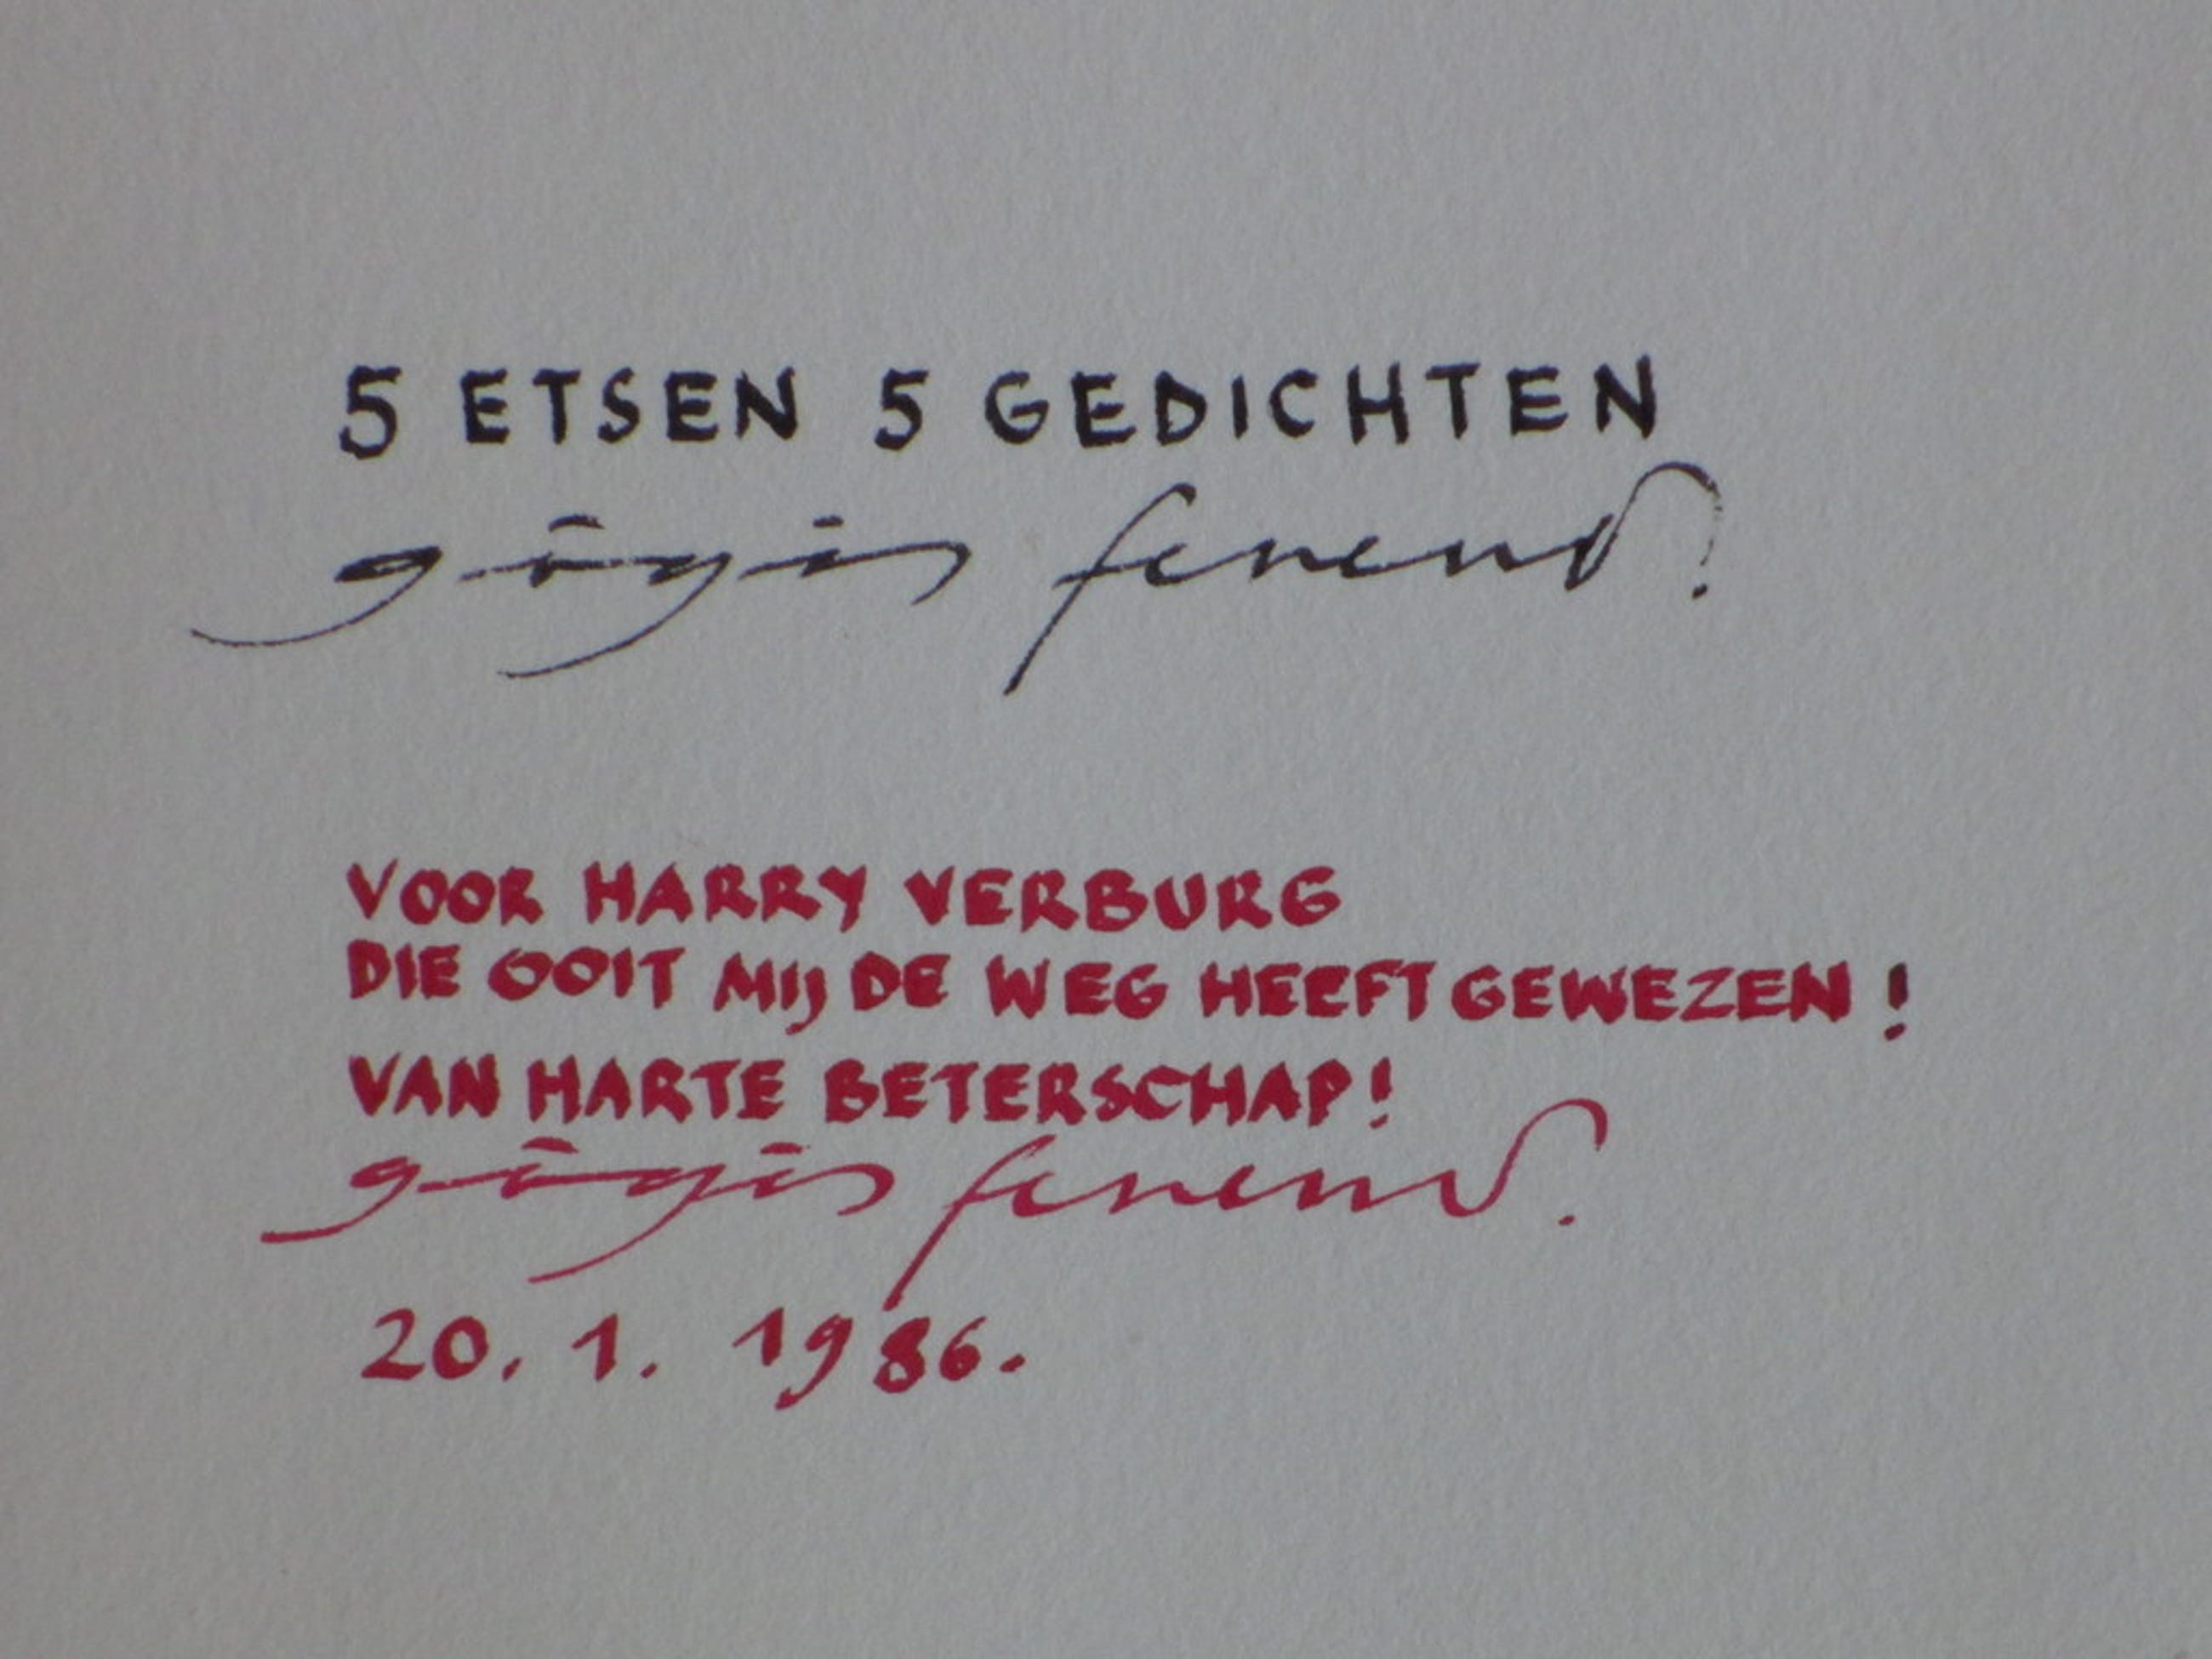 5 ETSEN 5 GEDICHTEN
VOOR HARRY VERBURG
DIE OOIT MIJ DE WEG HEEFT GEWEZEN !
VAN HARTE BETERSCHAP!
20. 1. 1986.